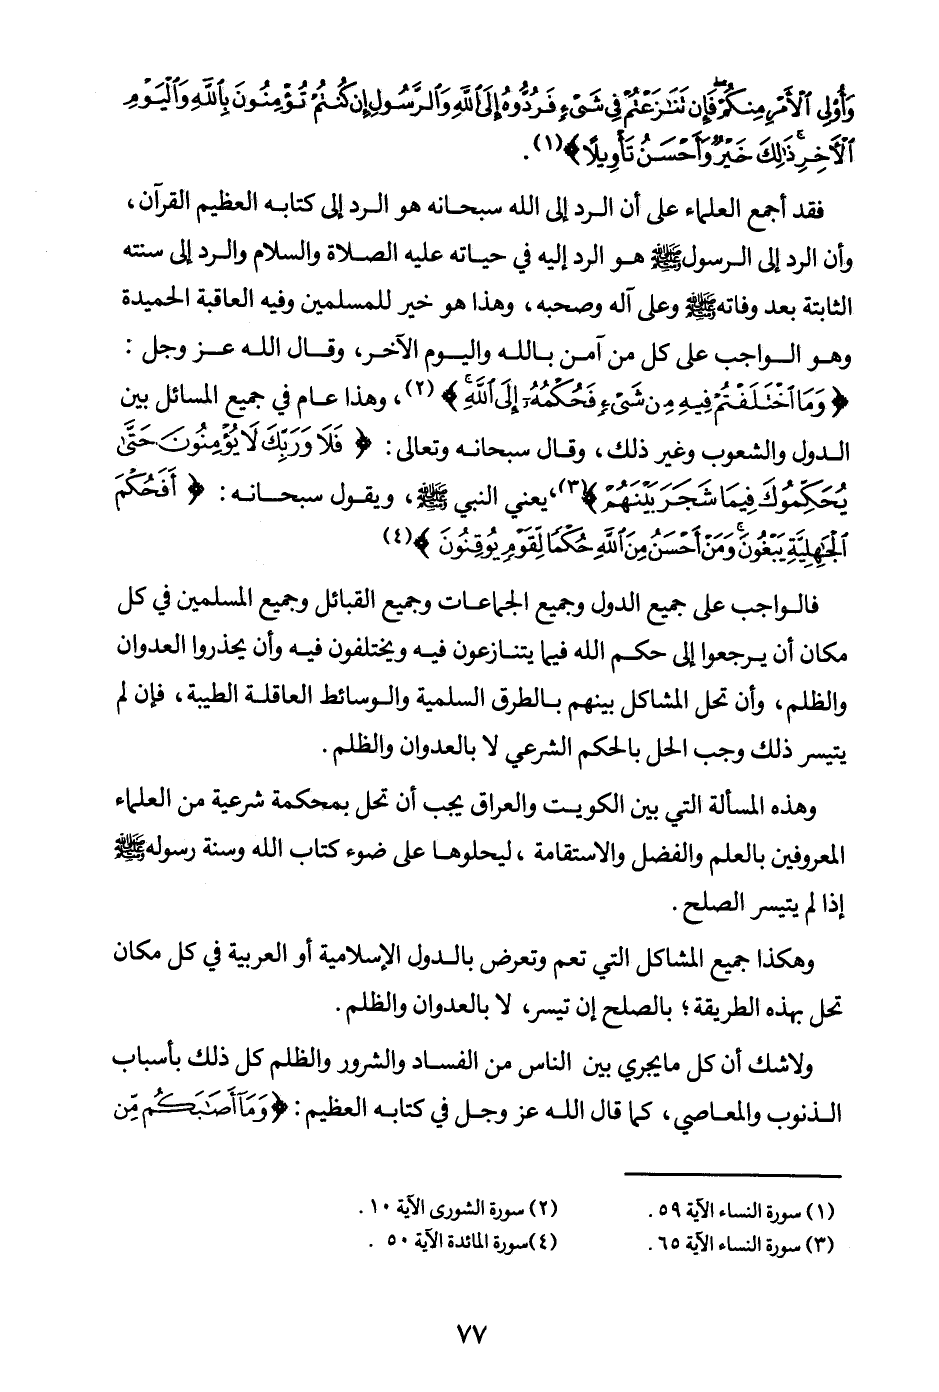 وَأُوْلِى ٱلْأَمْرِ مِنكُمْ ۖ فَإِن تَنَـٰزَعْتُمْ فِى شَىْءٍ فَرُدُّوهُ إِلَى ٱللَّهِ وَٱلرَّسُولِ إِن كُنتُمْ تُؤْمِنُونَ بِٱللَّهِ وَٱلْيَوْمِ
ٱلْـَٔاخِرِ ۚ ذَٰلِكَ خَيْرٌ وَأَحْسَنُ تَأْوِيلًا ﴾(١) .
فقد أجمع العلماء على أن الرد إلى الله سبحانه هو الرد إلى كتابه العظيم القرآن،
وأن الرد إلى الرسول ﷺ هو الرد إليه في حياته عليه الصلاة والسلام والرد إلى سنته
الثابتة بعد وفاته ﷺ وعلى آله وصحبه، وهذا هو خير للمسلمين وفيه العاقبة الحميدة
وهو الواجب على كل من آمن بالله واليوم الآخر، وقال الله عز وجل :
﴿ وَمَا ٱخْتَلَفْتُمْ فِيهِ مِن شَىْءٍ فَحُكْمُهُۥٓ إِلَى ٱللَّهِ ۚ ﴾ (٢)، وهذا عام في جميع المسائل بين
الدول والشعوب وغير ذلك، وقال سبحانه وتعالى: ﴿ فَلَا وَرَبِّكَ لَا يُؤْمِنُونَ حَتَّىٰ
يُحَكِّمُوكَ فِيمَا شَجَرَ بَيْنَهُمْ ﴾(٣)، يعني النبي ﷺ، ويقول سبحانه: ﴿ أَفَحُكْمَ
ٱلْجَـٰهِلِيَّةِ يَبْغُونَ ۚ وَمَنْ أَحْسَنُ مِنَ ٱللَّهِ حُكْمًا لِّقَوْمٍ يُوقِنُونَ ﴾(٤)
فالواجب على جميع الدول وجميع الجماعات وجميع القبائل وجميع المسلمين في كل
مكان أن يرجعوا إلى حكم الله فيما يتنازعون فيه ويختلفون فيه وأن يحذروا العدوان
والظلم، وأن تحل المشاكل بينهم بالطرق السلمية والوسائط العاقلة الطيبة، فإن لم
يتيسر ذلك وجب الحل بالحكم الشرعي لا بالعدوان والظلم.
وهذه المسألة التي بين الكويت والعراق يجب أن تحل بمحكمة شرعية من العلماء
المعروفين بالعلم والفضل والاستقامة ، ليحلوها على ضوء كتاب الله وسنة رسوله ﷺ
إذا لم يتيسر الصلح.
وهكذا جميع المشاكل التي تعم وتعرض بالدول الإسلامية أو العربية في كل مكان
تحل بهذه الطريقة؛ بالصلح إن تيسر، لا بالعدوان والظلم.
ولاشك أن كل مايجري بين الناس من الفساد والشرور والظلم كل ذلك بأسباب
الذنوب والمعاصي، كما قال الله عز وجل في كتابه العظيم: ﴿ وَمَآ أَصَـٰبَكُم مِّن
(١) سورة النساء الآية ٥٩ .
(٢) سورة الشورى الآية ١٠ .
(٣) سورة النساء الآية ٦٥.
(٤)سورة المائدة الآية ٥٠ .
٧٧